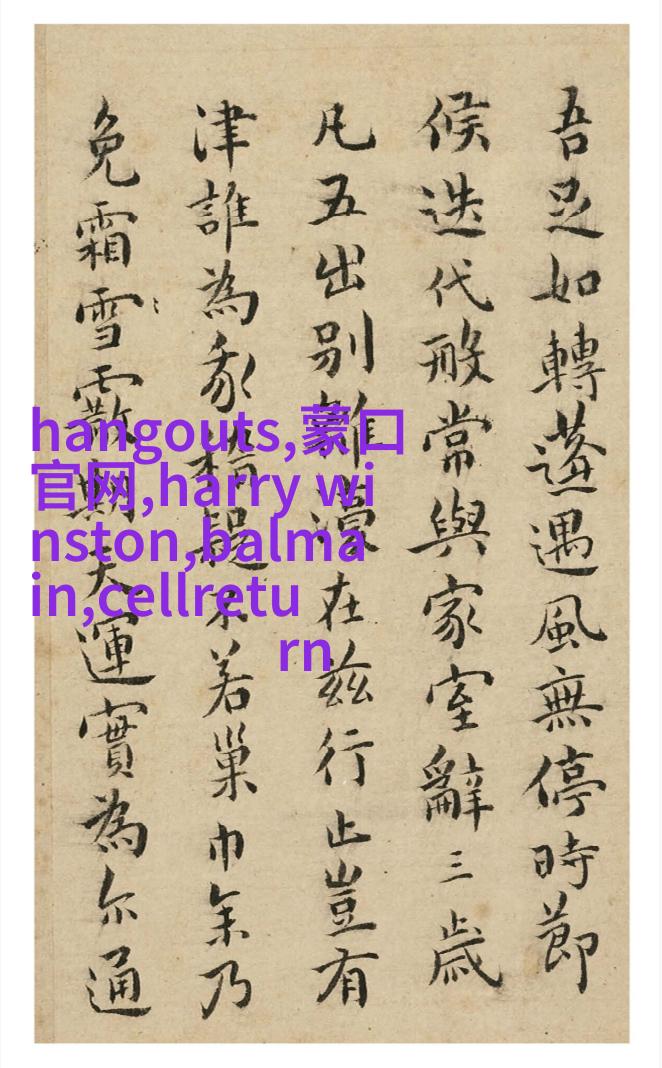 吾足如轉蓬遇風無停時節
候迭代般常與家室辭三歲
凡五出別離濠在茲行止豈有
津誰為豕提不若巢巾余乃
免霜雪霰期天運實為尔通
hangouts,蒙口
官网,harry wi
nston,balma
in,cellretu
rn